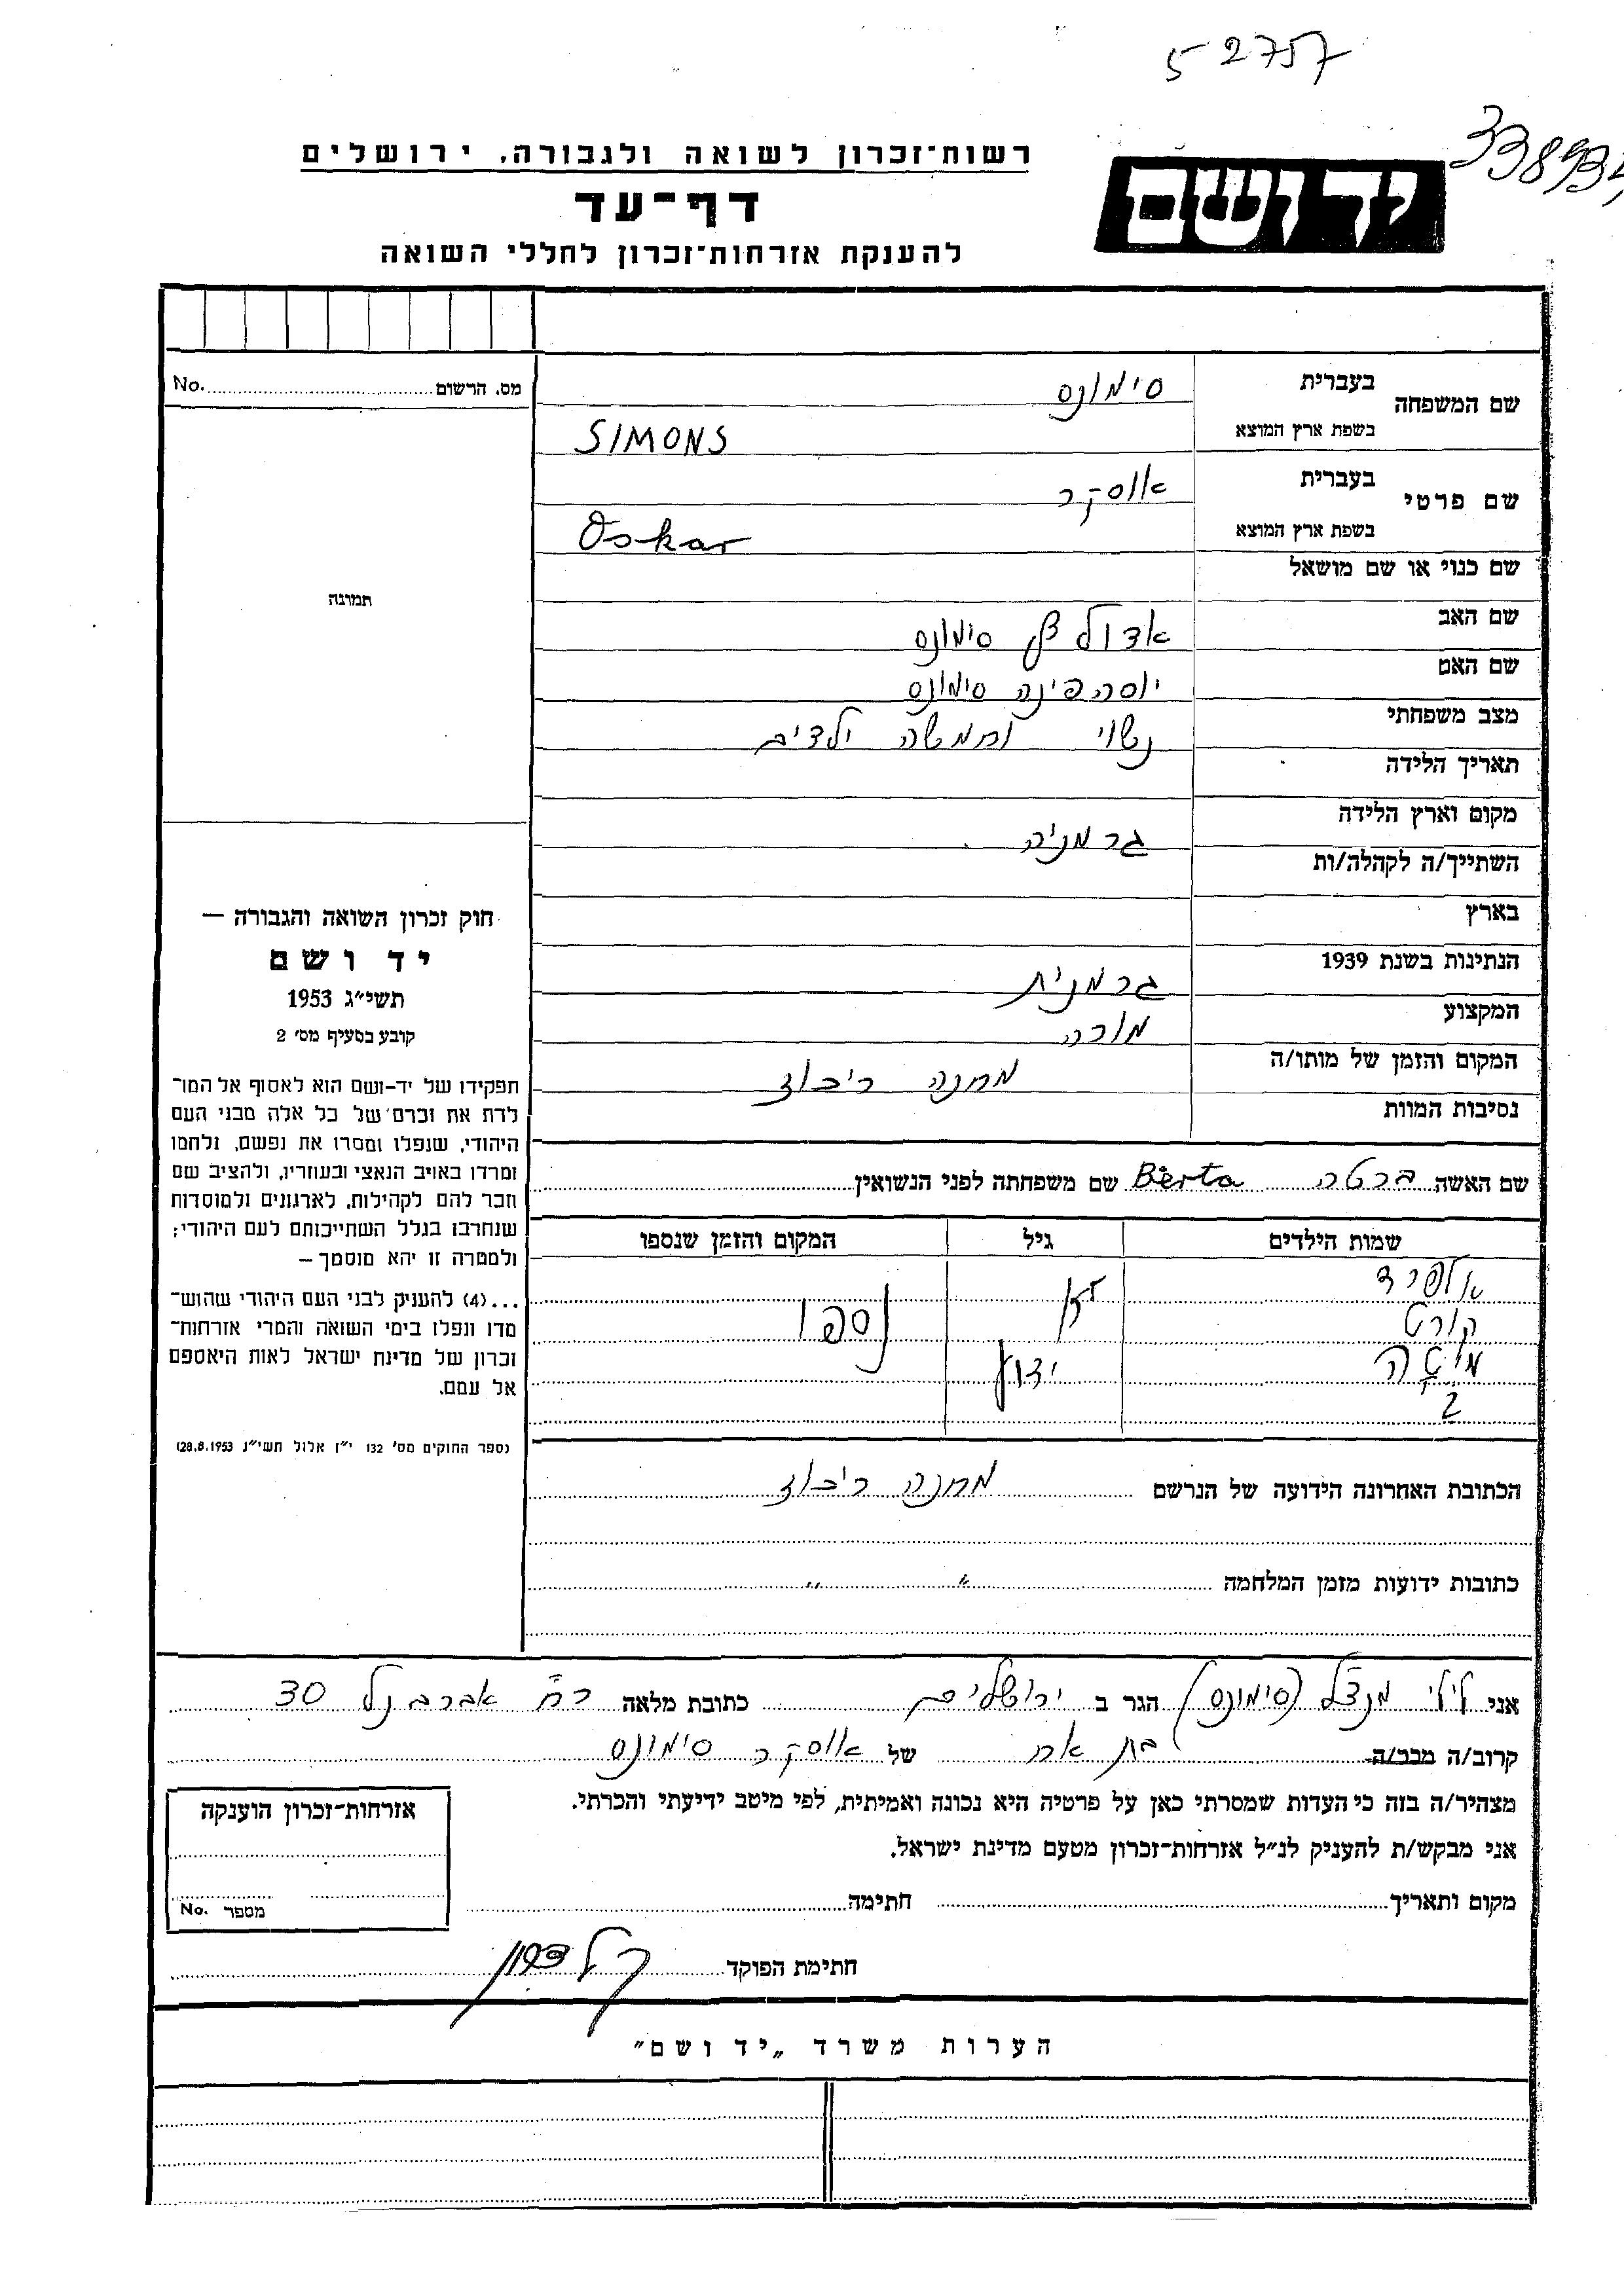 52757
רשות־זכרון לשואה ולגבורה, ירושלים
יד ושם
דף־עד
להענקת אזרחות־זכרון לחללי השואה
מס. הרשום No.
תמונה
שם המשפחה
בעברית סימונס
בשפת ארץ המוצא SIMONS
שם פרטי
בעברית אוסקר
בשפת ארץ המוצא Oskar
שם כנוי או שם מושאל
שם האב אדולף סימונס
שם האם יוספינה סימונס
מצב משפחתי נשוי וחמשה ילדים
תאריך הלידה
מקום וארץ הלידה גרמניה
השתייך/ה לקהלה/ות
בארץ
הנתינות בשנת 1939 גרמנית
המקצוע מורה
המקום והזמן של מותו/ה מחנה ריבוז
נסיבות המוות
שם האשה ברטה Berta שם משפחתה לפני הנשואין
שמות הילדים גיל המקום והזמן שנספו
אלפרד
קורט לא נספו
ידוע
2
הכתובת האחרונה הידועה של הנרשם מחנה ריבוז
כתובות ידועות מזמן המלחמה " "
חוק זכרון השואה והגבורה —
יד ושם
תשי״ג 1953
קובע בסעיף מס׳ 2
תפקידו של יד-ושם הוא לאסוף אל המו־
לדת את זכרם של כל אלה מבני העם
היהודי, שנפלו ומסרו את נפשם, נלחמו
ומרדו באויב הנאצי ובעוזריו, ולהציב שם
וזכר להם לקהילות, לארגונים ולמוסדות
שנחרבו בגלל השתייכותם לעם היהודי;
ולמטרה זו יהא מוסמך —
...(4) להעניק לבני העם היהודי שהוש־
מדו ונפלו בימי השואה והמרי אזרחות־
זכרון של מדינת ישראל לאות היאספם
אל עמם.
(ספר החוקים מס׳ 132 י״ז אלול תשי״ג 28.8.1953)
אני לילי מנדל (סימונס) הגר ב ירושלים כתובת מלאה רח׳ אברבנל 30
קרוב/ה מכר/ה בת אח של אוסקר סימונס
מצהיר/ה בזה כי העדות שמסרתי כאן על פרטיה היא נכונה ואמיתית, לפי מיטב ידיעתי והכרתי.
אני מבקש/ת להעניק לנ״ל אזרחות־זכרון מטעם מדינת ישראל.
מקום ותאריך חתימה
חתימת הפוקד
אזרחות־זכרון הוענקה
מספר No.
הערות משרד „יד ושם״